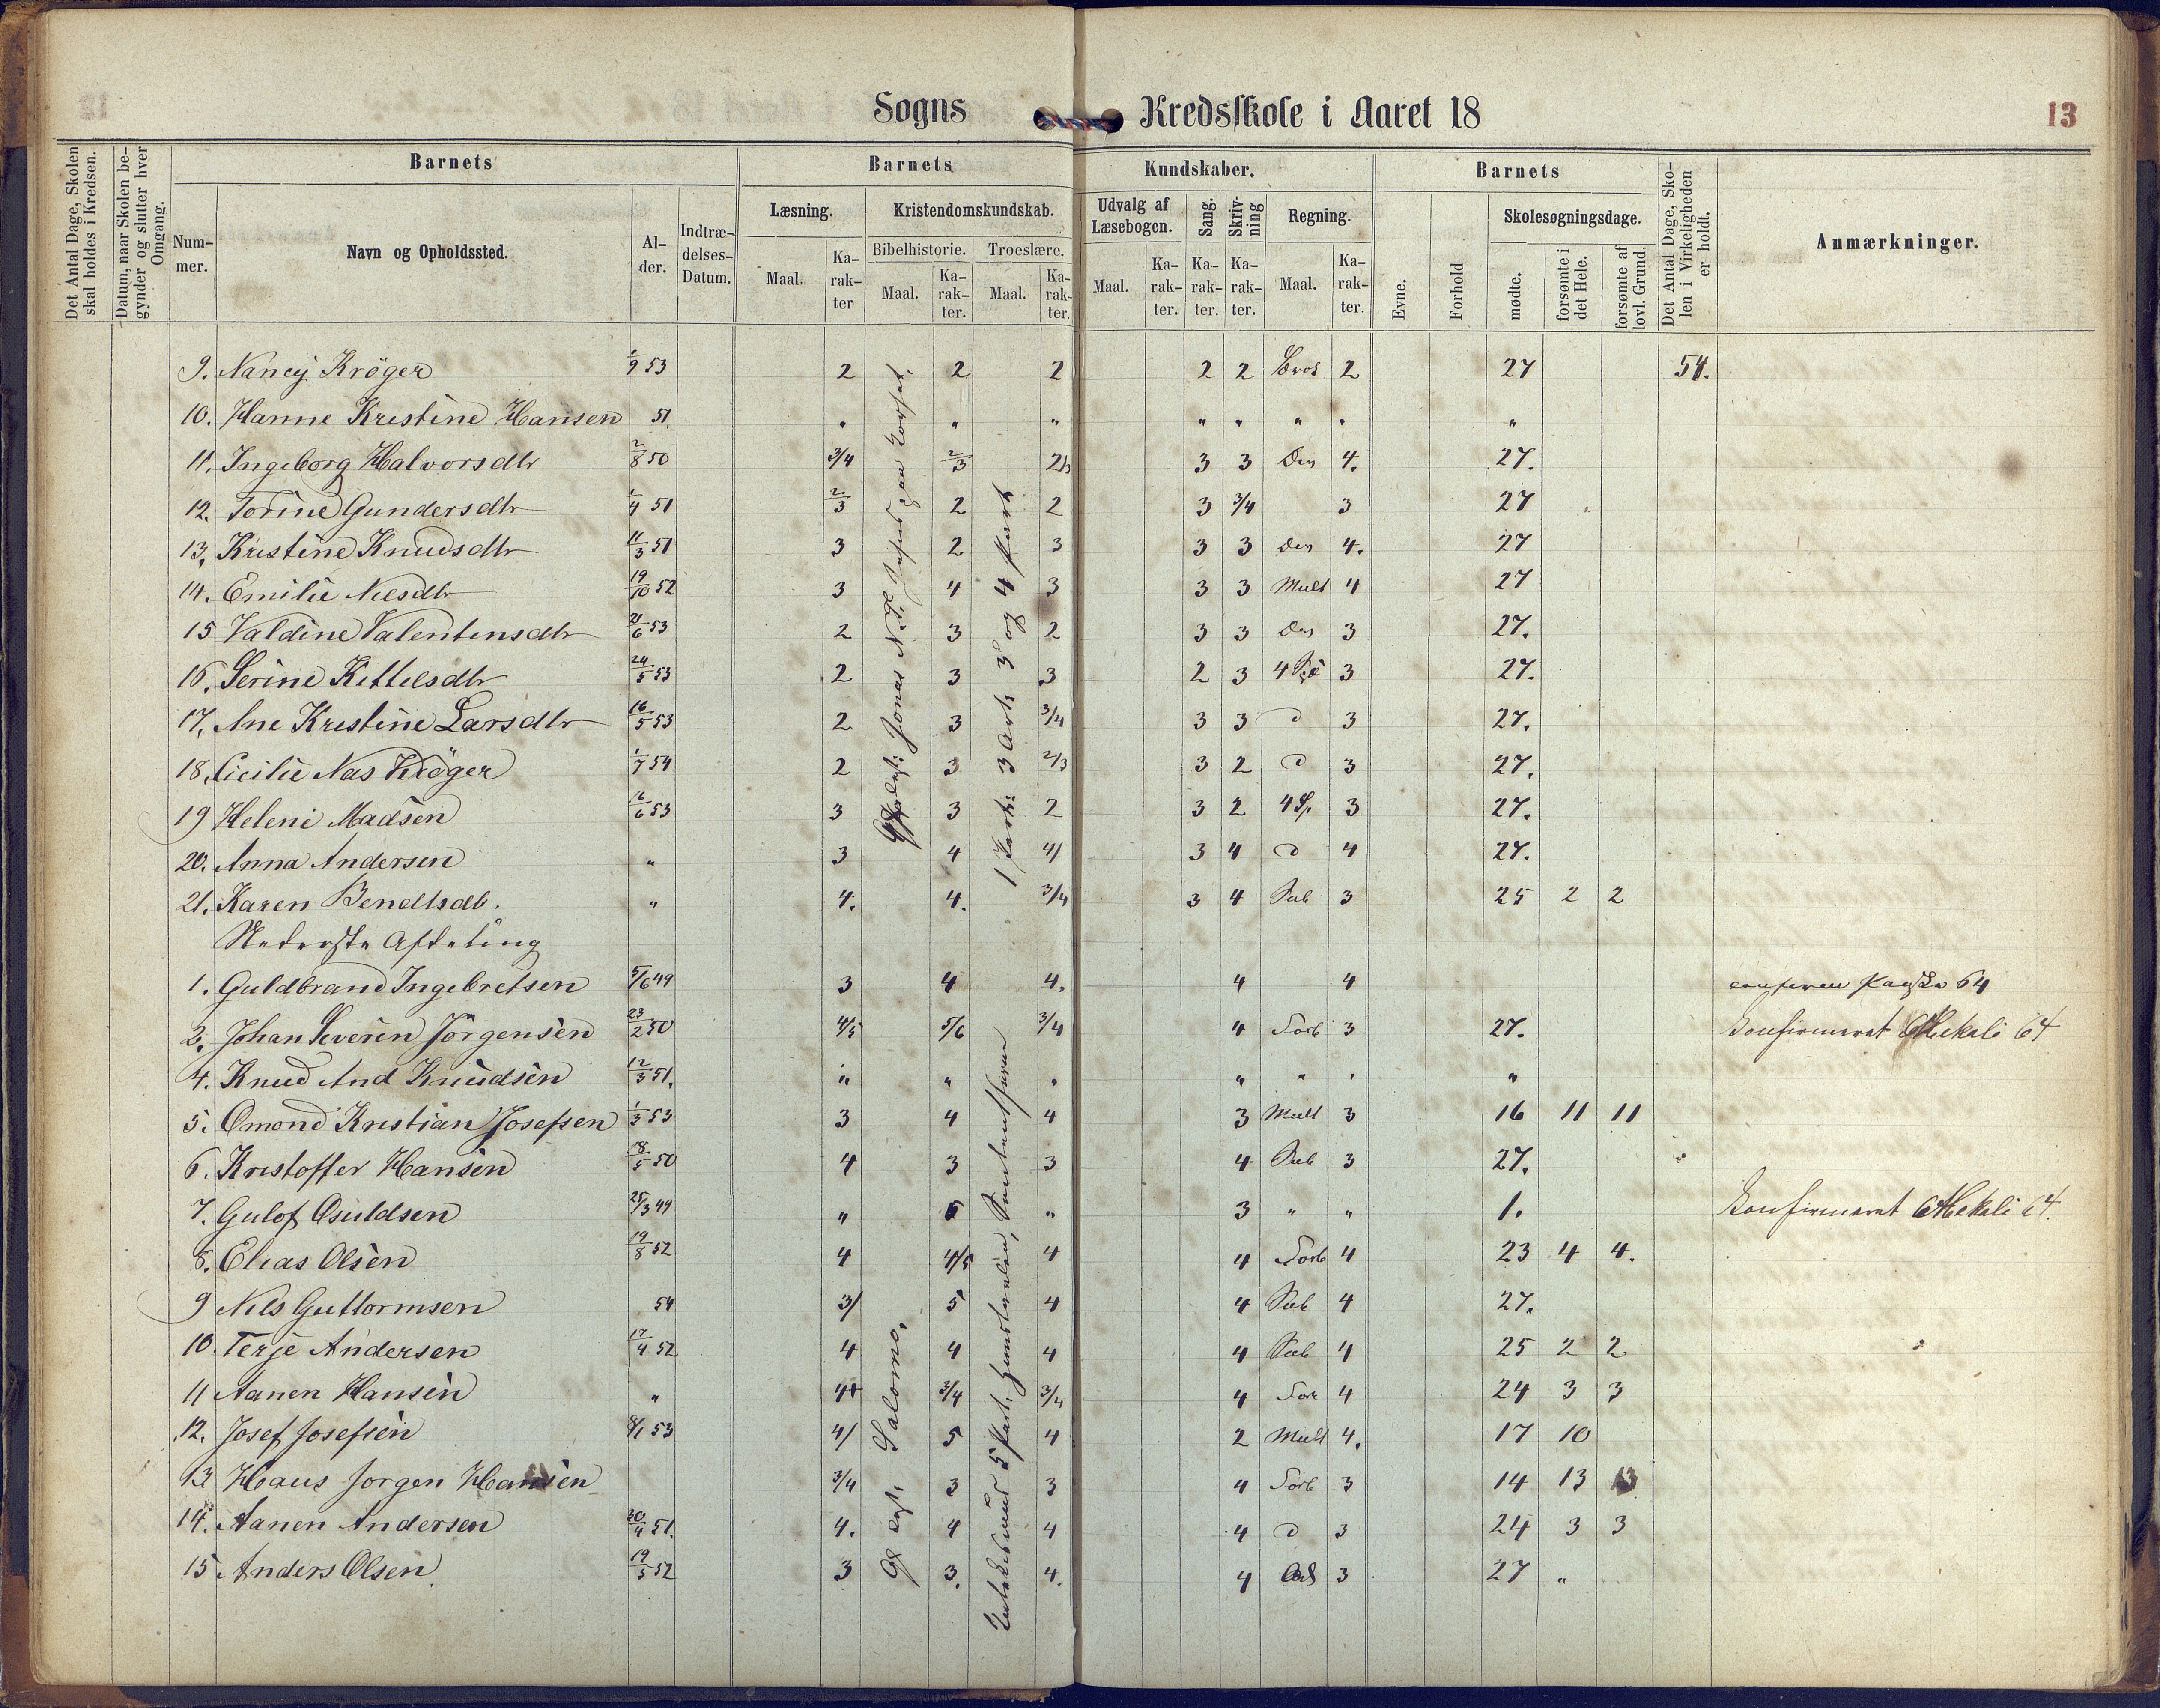 Sogns Kredsskole i Aaret 18
13
Det Antal Dage, Skolen skal holdes i Kredsen.
Datum, naar Skolen begynder og slutter hver Omgang.
Barnets
Nummer.
Navn og Opholdssted.
Alder.
Indtrædelses-Datum.
Barnets Kundskaber.
Læsning.
Maal.
Karakter
Kristendomskundskab.
Bibelhistorie.
Maal.
Karakter.
Troeslære.
Maal.
Karakter.
Udvalg af Læsebogen.
Maal.
Karakter.
Sang.
Karakter.
Skrivning
Karakter.
Regning.
Maal.
Karakter.
Barnets
Evne.
Forhold
Skolesøgningsdage.
mødte.
forsømte i det Hele.
forsømte af lovl. Grund.
Det Antal Dage, Skolen i Virkeligheden er holdt.
Anmærkninger.
9. Nancy Krøger 1/9 53 2 2 2 2 2 2 27 54.
10. Hanne Kristine Hansen 51 " " " " " " " "
11. Ingeborg Halvorsdtr 2/8 50 3/4 2/3 3 3 Den 4. 27.
12. Torine Gundersdtr 1/4 51 2/3 2 2 3 3/4 3 27
13. Kristine Knudsdtr 11/3 51 3 2 3 3 3 Den 4. 27
14. Emilie Nilsdtr 19/10 52 3 4 3 3 3 Mult 4 27
15 Valdine Valentinsdtr 21/6 53 2 3 2 3 3 Den 3 27.
16. Serine Kittelsdtr 24/5 53 2 3 3 2 3 3 27.
17. Ane Kristine Larsdtr 16/5 53 2 3 3/4 3 3 D 3 27.
18. Cicilie Nas Krøger 1/7 54 2 3 2/3 3 2 D 3 27.
19 Helene Madsen 16/6 53 3 3 2 3 2 4 Sp. 3 27.
20. Anna Andersen " 3 4 4/ 3 4 D 4 27.
21. Karen Bendtsdtr. " 4. 4. 3/4 3 4 Sub 3 25 2 2
Nederste Afdeling
1. Guldbrand Ingebretsen 5/6 49 3 4 4. 4 4 Paaske 64
2. Johan Severin Jörgensen 23/2 50 4/5 5/6 3/4 4 Forb 3 27. Konfirmeret Mekali 64
4. Knud And Knudsen 12/3 51. " " " " " " "
5. Omond Kristian Josefsen 1/3 53 3 4 4 3 Mult 3 16 11 11
6. Kristoffer Hansen 18/5 50 4 3 3 4 Sub 3 27.
7. Gulof Osuldsen 25/3 49 " 5 " 3 " " 1. Konfirmeret Mekali 64.
8. Elias Olsen 19/8 52 4 4/5 4 4 Forb 4 23 4 4.
9 Nils Guttormsen 54 3/ 5 4 4 Sub 4 27.
10. Terje Andersen 17/4 52 4 4 4 4 Sub 4 25 2 2
11 Aanen Hansen " 4+ 3/4 3/4 4 Forb 4 24 3 3
12. Josef Josefsen 8/1 53 4/ 5 4 2 Mult 4. 17 10
13 Hans Jorgen Hansen 3/4 3 3 4 Forb 3 14 13 13
14. Aanen Andersen 30/4 51. 4. 4 4 4 D 3 24 3 3
15 Anders Olsen 19/5 52 3 3. 4. 4 Add 3 27 "
Jonas
3 Art: 3 og 4 Part
Salomo.
5 Part: